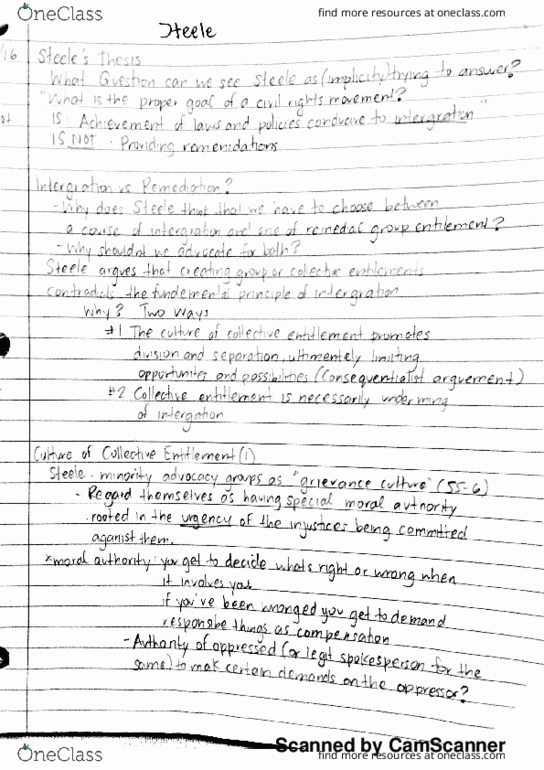 OneClass
find more resources at oneclass.com
Steele
/16
Steele's Thesis
What Question can we see Steele as (implicitly) trying to answer?
"What is the proper goal of a civil rights movement?
IS · Achievement of laws and policies conducive to intergration"
IS NOT · Providing remenidations
Intergration vs. Remediation?
- Why does Steele think that we have to choose between
a course of intergration and one of remedal group entitlement?
- Why shouldnt we advocate for both?
Steele argues that creating group or collective entitlements
contradicts the fundemental principle of intergration
Why? Two Ways
#1 The culture of collective entitlement promotes
division and separation, ultimentely limiting
opportunites and possibilities (Consequentialist arguement)
#2 Collective entitlement is necessarily underming
of intergation
Culture of Collective Entitlement (1)
Steele · minority advocacy groups as "grievance culture" (55-6)
- Regard themselves as having special moral authority
rooted in the urgency of the injustices being committed
aganist them.
*moral authority: you get to decide whats right or wrong when
it involves you
if you've been wronged you get to demand
responsbe things as compensation
- Authority of oppressed (or legit spokesperson for the
same) to mak certain demands on the oppressor?
Scanned by CamScanner
OneClass
find more resources at oneclass.com